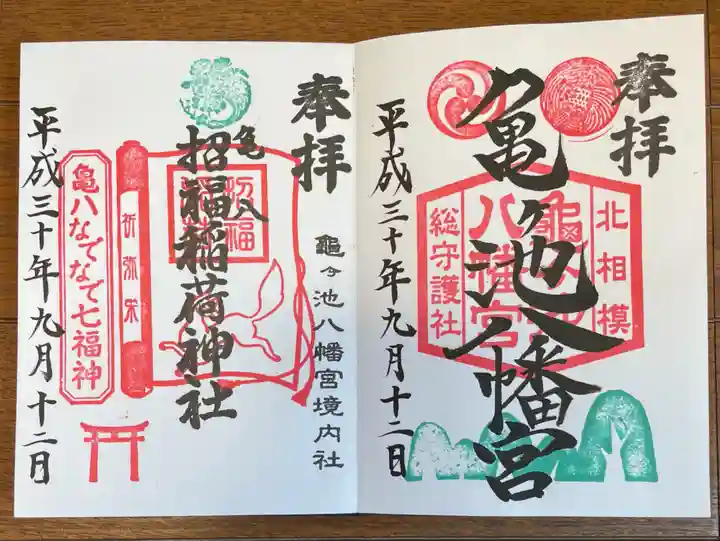 奉拝
亀ヶ池八幡宮
北相模
総守護社
八幡宮
平成三十年九月十二日
奉拝
龜ヶ池八幡宮境内社
亀八
招福稲荷神社
招福
祈弥栄
亀八なでなで七福神
平成三十年九月十二日